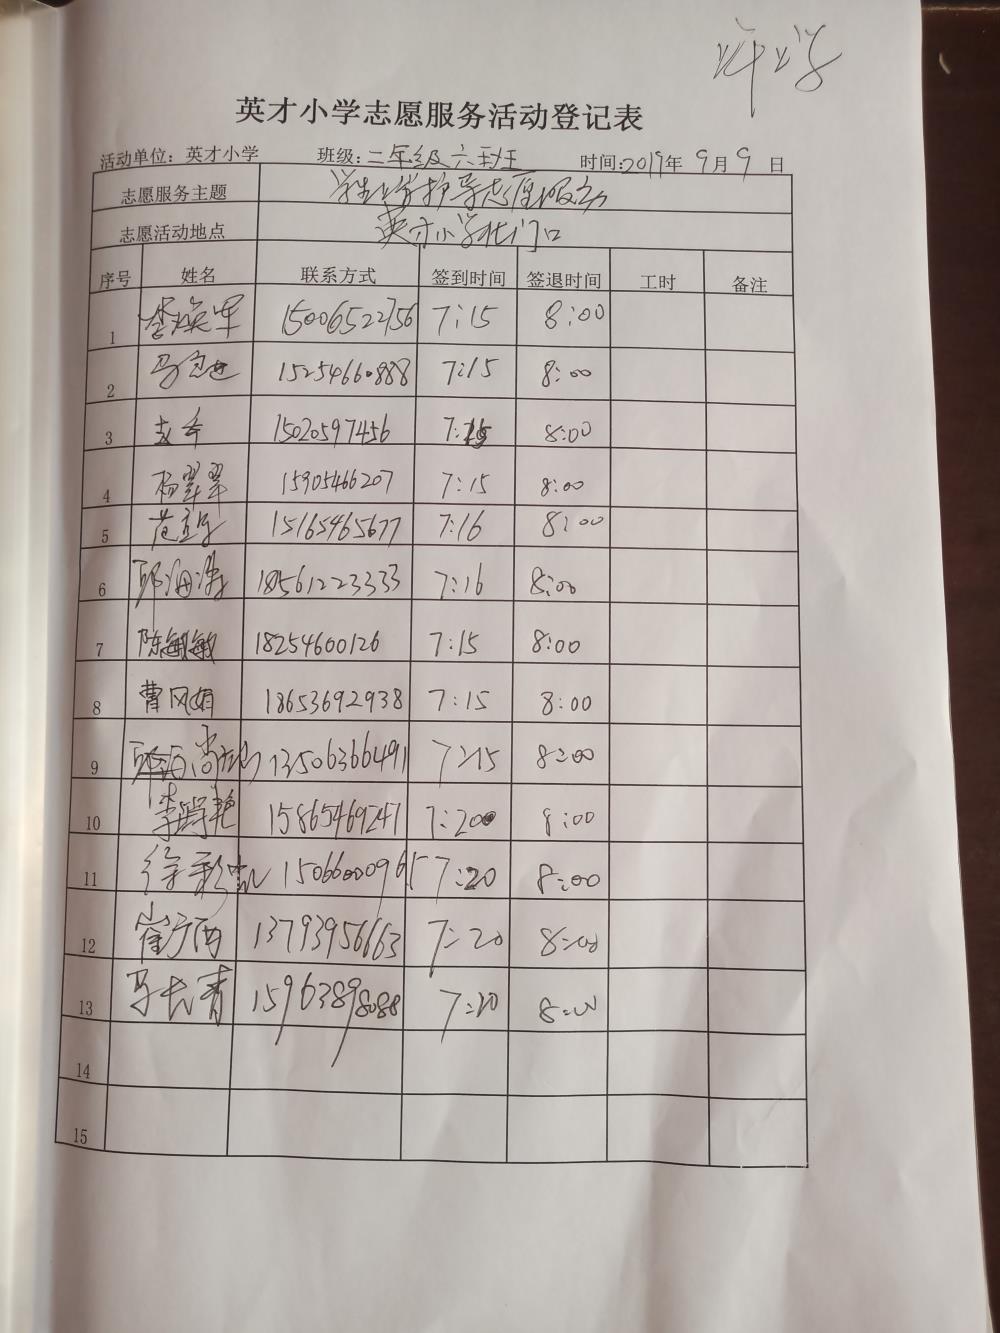 英才小学志愿服务活动登记表
活动单位：英才小学 班级：二年级六班 时间：2019年9月9日
志愿服务主题 学生上学护导志愿服务
志愿活动地点 英才小学北门口
序号 姓名 联系方式 签到时间 签退时间 工时 备注
1 李焕军 15006522756 7:15 8:00
2 马 15254660888 7:15 8:00
3 15020597456 7:15 8:00
4 杨翠翠 15905466207 7:15 8:00
5 范 15165465677 7:16 8:00
6 邱海涛 18561223333 7:16 8:00
7 陈敏敏 18254600126 7:15 8:00
8 曹风娟 18653692938 7:15 8:00
9 13506366491 7:15 8:00
10 李 艳 15865469241 7:20 8:00
11 徐彩 15066000965 7:20 8:00
12 崔方雨 13793956663 7:20 8:00
13 马长青 15963898088 7:20 8:00
14
15